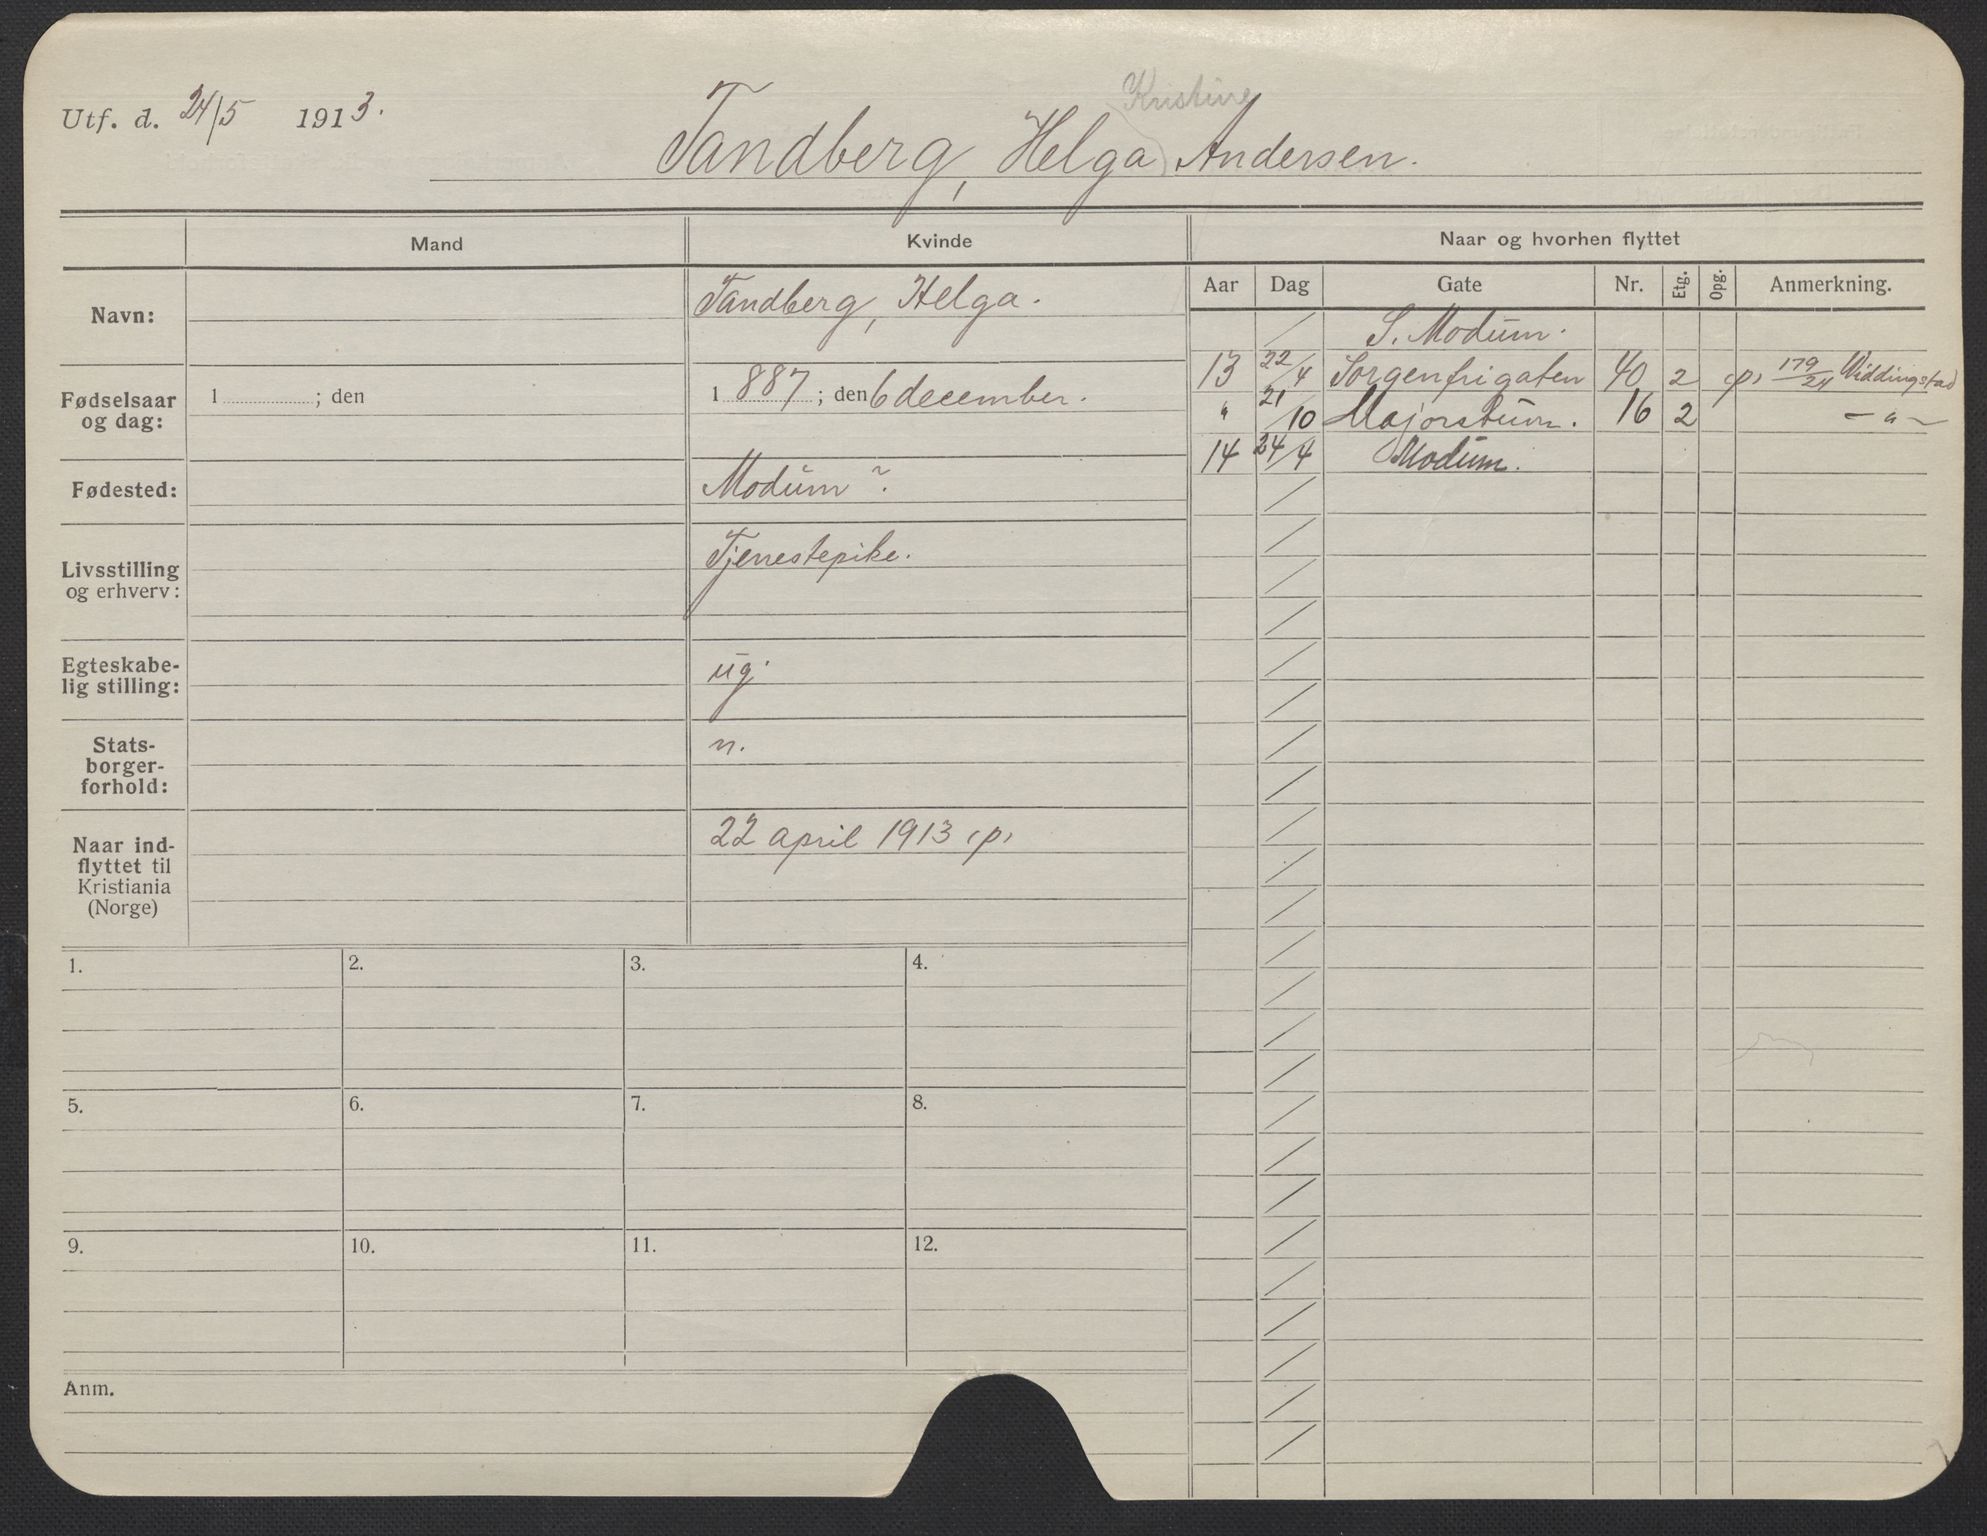 Utf. d. 24/5 1913.
Kristine
Tandberg, Helga Andersen.
Mand
Kvinde
Naar og hvorhen flyttet
Aar Dag Gate Nr. Etg. Opg. Anmerkning.
Navn:
Tandberg, Helga.
Fødselsaar
og dag:
1 ; den
1 887 ; den 6 december.
Fødested:
Modum ?
Livsstilling
og erhverv:
Tjenestepike.
Egteskabe-
lig stilling:
ug.
Stats-
borger-
forhold:
n.
Naar ind-
flyttet til
Kristiania
(Norge)
22 april 1913 (p)
/ S. Modum.
13 22/4 Sorgenfrigaten 40 2 (p) 179/24 Widdingstad
" 21/10 Majorstuvn. 16 2 – " –
14 24/4 Modum.
1. 2. 3. 4.
5. 6. 7. 8.
9. 10. 11. 12.
Anm.